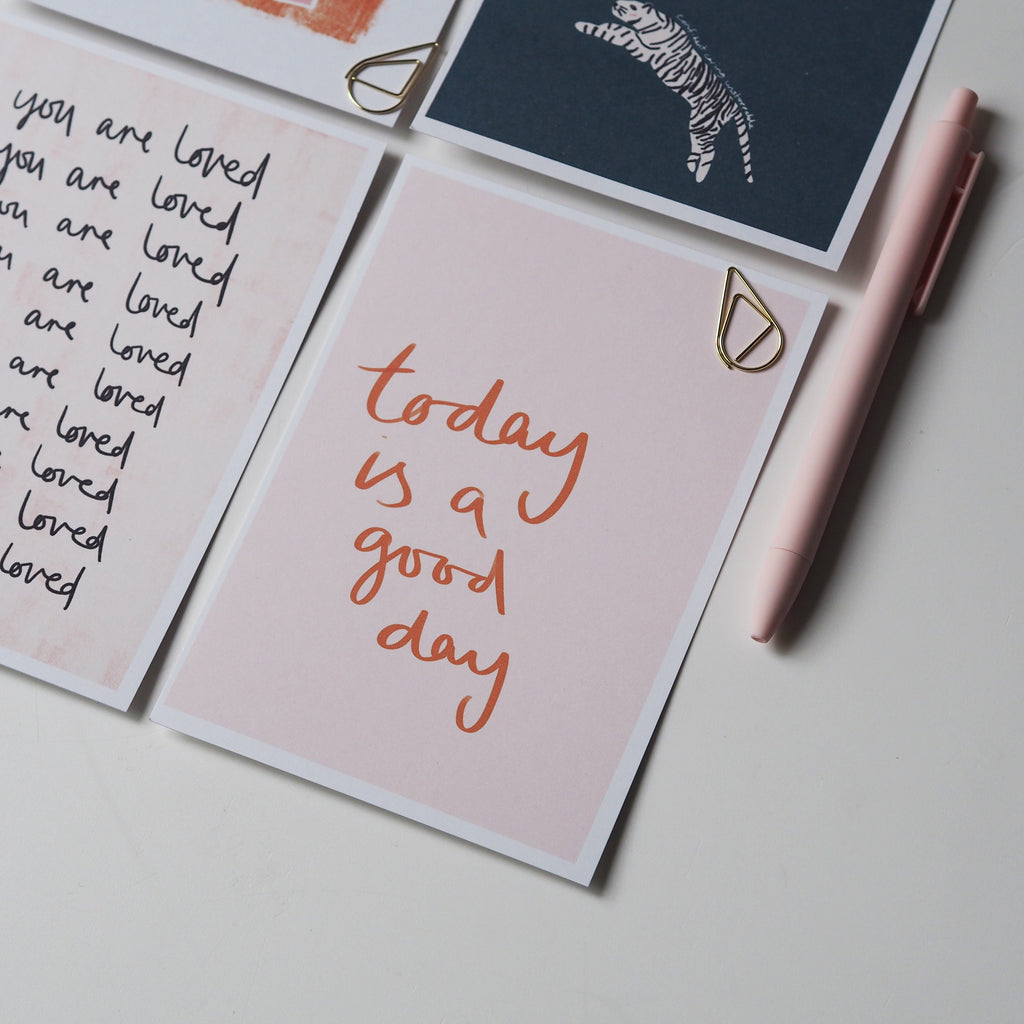 you are loved
you are loved
you are loved
are loved
are loved
are loved
are loved
loved
loved
loved
today
is a
good
day